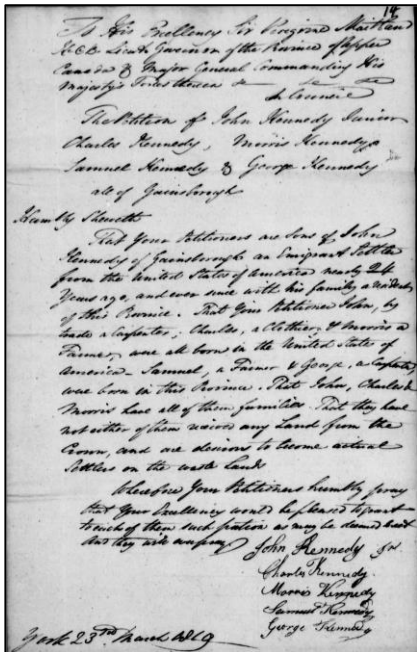 14
To His Excellency Sir Peregrine Maitland
KCB Lieut Governor of the Province of Upper
Canada & Major General Commanding His
Majesty's Forces therein &c &c &c
In Council
The Petition of John Kennedy Junior
Charles Kennedy, Morris Kennedy,
Samuel Kennedy & George Kennedy
all of Gainsborough
Humbly Sheweth
That Your Petitioners are Sons of John
Kennedy of Gainsborough an Emigrant Settler
from the United States of America nearly 24
Years ago, and ever since with his family a resident
of this Province. That Your Petitioner John, by
trade a Carpenter, Charles, a Clothier, & Morris a
Farmer, were all born in the United States of
America - Samuel, a Farmer & George, a Carpenter,
were born in this Province. That John, Charles &
Morris have all of them families. That they have
not either of them received any Land from the
Crown, and are desirous to become actual
Settlers on the waste lands
Wherefore Your Petitioners humbly pray
that Your Excellency would be pleased to grant
to each of them such portion as may be deemed
And they will ever pray
John Kennedy Jr.
Charles Kennedy
Morris Kennedy
Samuel Kennedy
George Kennedy
York 23rd March 1819